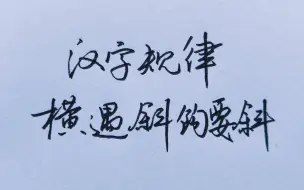 汉字规律
横遇斜钩要斜